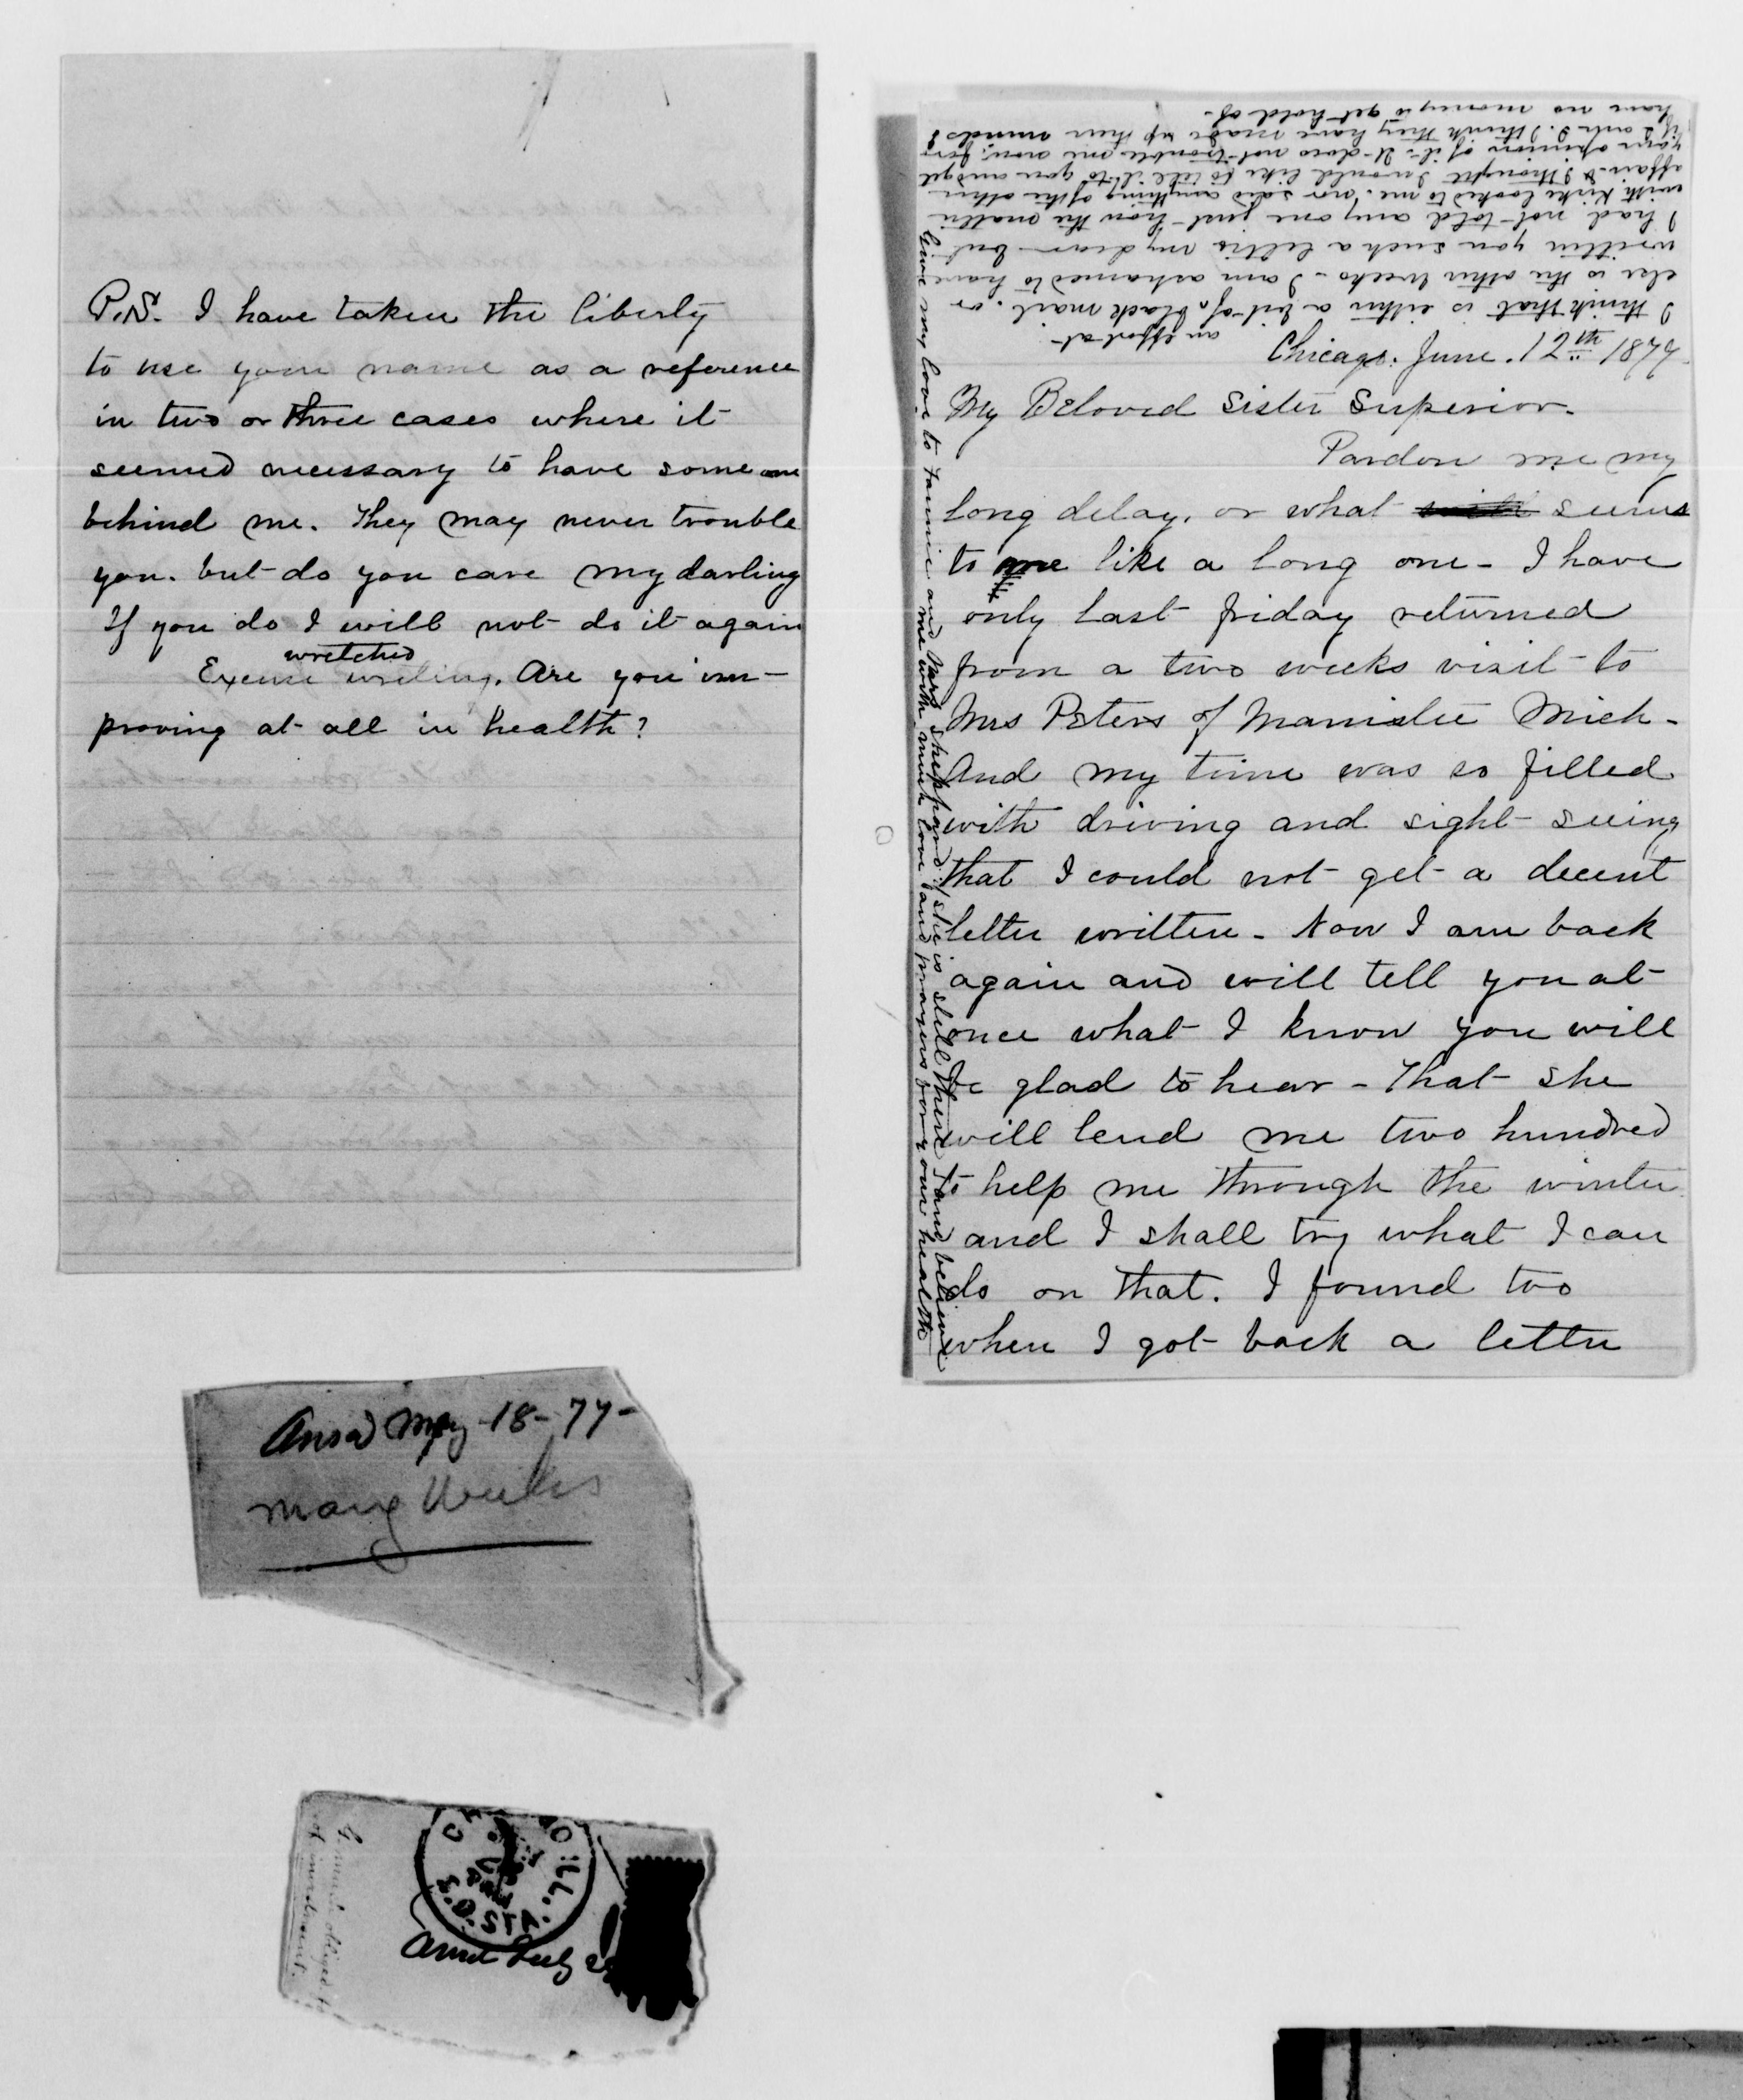 P.S. I have taken the liberty
to use your name as a reference
in two or three cases where it
seemed necessary to have some one
behind me. They may never trouble
you. but do you care my darling
If you do I will not do it again
Excuse wretched writing. Are you im-
proving at all in health?
Ansd May-18-77-
Mary Weeks
CHICAGO ILL.
S.D. STA.
Ansd July 2
much obliged
Chicago. June. 12th 1877
My Beloved Sister Superior.
Pardon me my
long delay, or what seems
to me like a long one - I have
only last friday returned
from a two weeks visit to
Mrs Peters of Manistee Mich -
And my time was so filled
with driving and sight seeing
that I could not get a decent
letter written - Now I am back
again and will tell you at
once what I know you will
be glad to hear - That she
will lend me two hundred
to help me through the winter
and I shall try what I can
do on that. I found too
when I got back a letter
I think that is either a bit of an effort at black mail. or
else is the other Weeks - I am ashamed to have
written you such a letter my dear - but
I had not told any one just how the matter
with Kirke looked to me. nor said anything of the other
affair - & I thought I would like to tell it to you and get
your opinion of it - It does not trouble me now; for
if I owe I think they have made up their minds I
have no money to get hold of -
Give my love to Fannie and Mrs Sheppard if she is still there & and believe
me with much love and prayers for your health